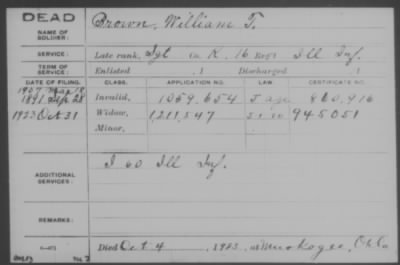 DEAD
NAME OF SOLDIER: Brown, William T.
SERVICE: Late rank, Sgt Co. K, 16 Reg't Ill Inf.
TERM OF SERVICE: Enlisted , 1 Discharged , 1
DATE OF FILING. CLASS. APPLICATION NO. LAW. CERTIFICATE NO.
1907 Mar 18
1891 Sep 28 Invalid, 1059,654 J ape 860,916
1923 Oct 31 Widow, 1211,547 945051
Minor,
ADDITIONAL SERVICES: I 60 Ill Inf.
REMARKS:
Died Oct 4, 1923, at Muskogee, Okla